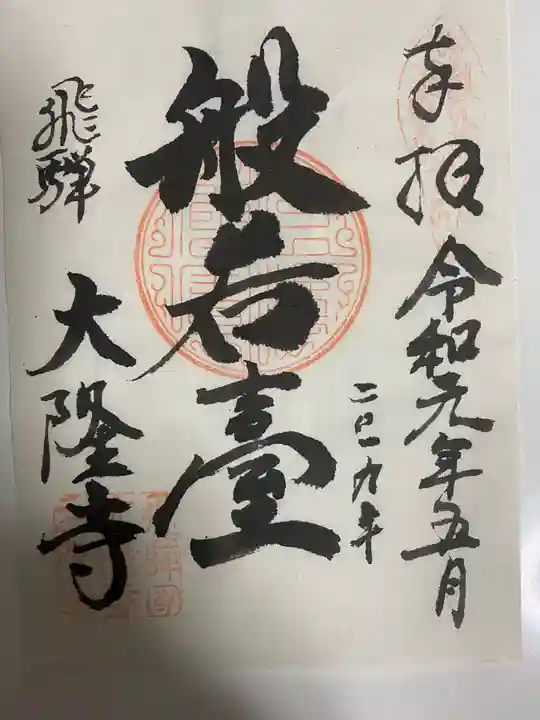 奉拝
令和元年五月
二〇一九年
般若臺
飛騨
大隆寺